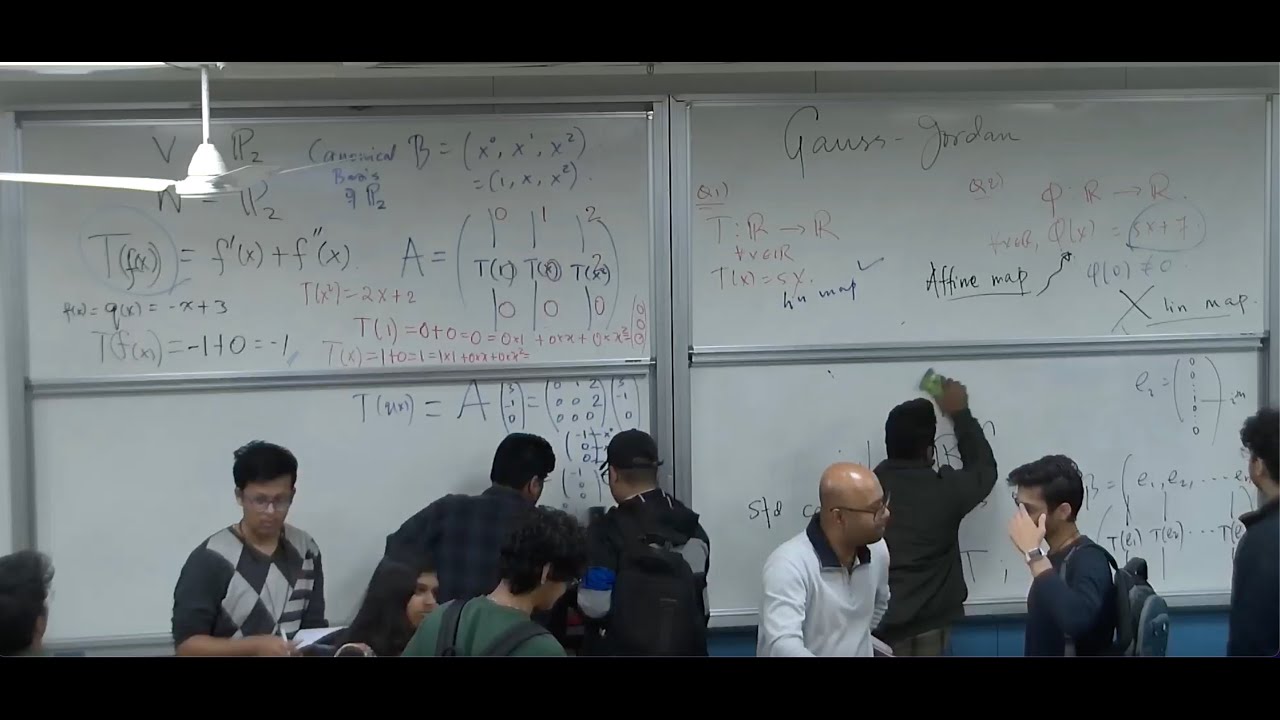 V = ℙ₂
W = ℙ₂
Canonical Basis of ℙ₂
B = (x⁰, x¹, x²)
= (1, x, x²).
T(f(x)) = f'(x) + f''(x)
A = (
0 1 2
T(1) T(x) T(x²)
0 0 0
)
f(x) = q(x) = -x + 3
T(f(x)) = -1 + 0 = -1
T(x²) = 2x + 2
T(1) = 0 + 0 = 0 = 0×1 + 0×x + 0×x² = (0 0 0)
T(x) = 1 + 0 = 1 = 1×1 + 0×x + 0×x² =
T(q(x)) = A (3 -1 0) = (0 1 2
0 0 2
0 0 0) (3 -1 0)
Gauss-Jordan
Q1)
T : ℝ → ℝ
∀x∈ℝ
T(x) = 5x.
lin map ✓
Q2)
φ : ℝ → ℝ.
∀x∈ℝ, φ(x) = 5x + 7.
Affine map
φ(0) ≠ 0.
X lin map.
std
T :
B = (e₁, e₂, ...
T(e₁) T(e₂) ...